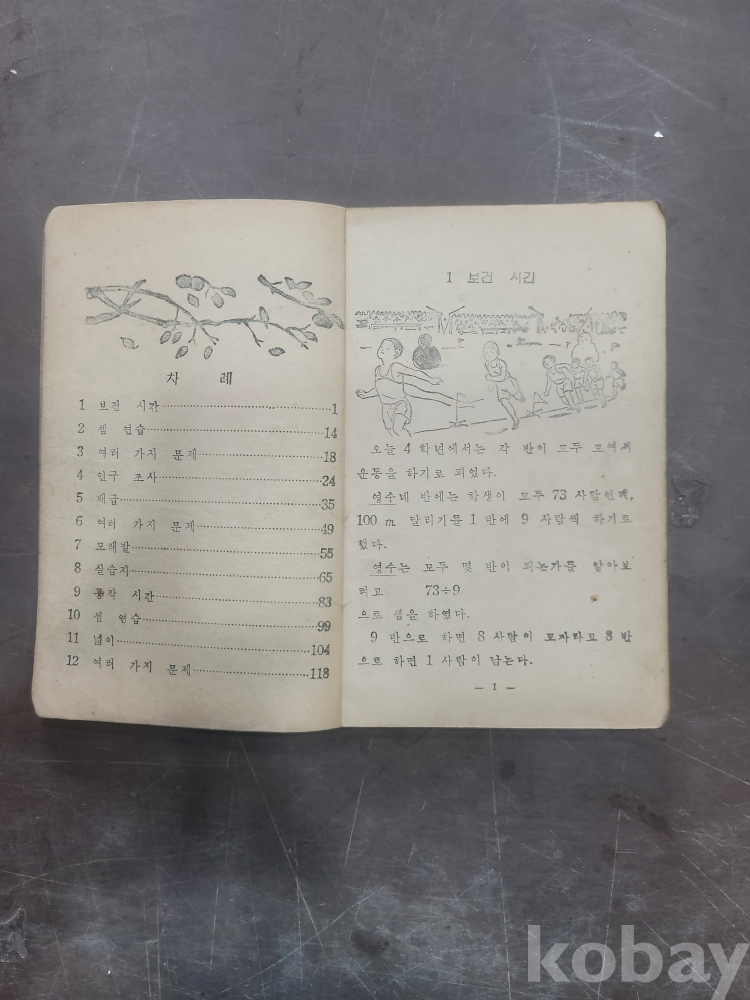 차 레
1 보건 시간 1
2 셈 연습 14
3 여러 가지 문제 18
4 인구 조사 24
5 배급 35
6 여러 가지 문제 49
7 모래밭 55
8 실습지 65
9 공작 시간 83
10 셈 연습 99
11 넓이 104
12 여러 가지 문제 118
1 보건 시간
오늘 4 학년에서는 각 반이 모두 모여서
운동을 하기로 되었다.
영수네 반에는 학생이 모두 73 사람인데,
100 m 달리기를 1 반에 9 사람씩 하기로
했다.
영수는 모두 몇 반이 되는가를 알아보
려고 73÷9
으로 셈을 하였다.
9 반으로 하면 8 사람이 모자라고 8 반
으로 하면 1 사람이 남는다.
— 1 —
kobay